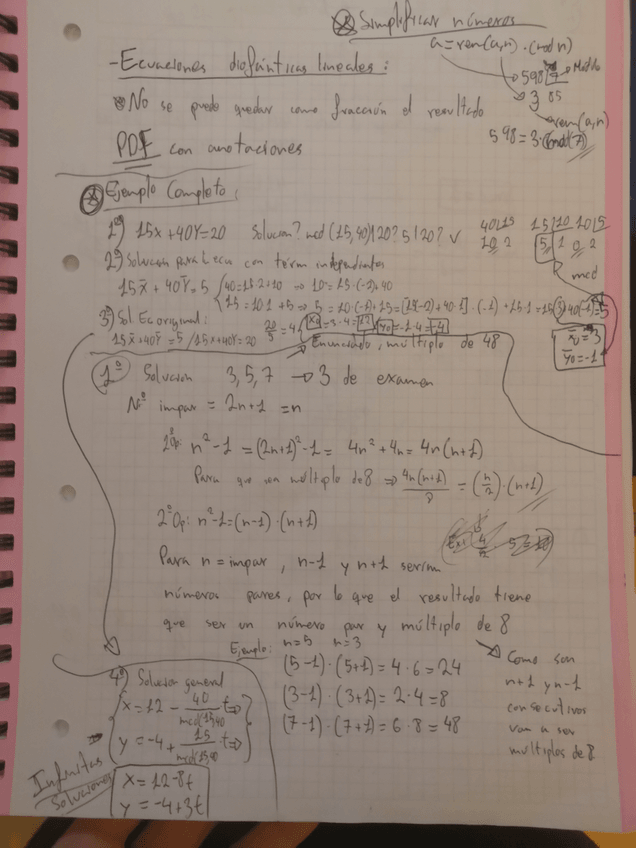 Simplificar números
a = rem(a,n) · (mod n)
- Ecuaciones diofánticas lineales:
598 | 7 → Modulo
3 85
No se puede quedar como fracción el resultado
rem(a,n)
598 = 3 · (mod(7)
PDF con anotaciones
Ejemplo Completo:
1º) 15x + 40Y = 20 Solucion? mcd (15,40)|20? 5|20? √
40|15 15|10 10|5
10 2 5 1 0 2
mcd
2º) Solución para la ecu con térm independientes
15x̄ + 40Ȳ = 5 { 40 = 15·2+10 ⇒ 10 = 15·(-2)+40
15 = 10·1 + 5 ⇒ 5 = 10·(-1)+15 = [15(-2)+40·1]·(-1)+15·1 = 15(3)+40(-1) = 5
x̄₀ = 3
ȳ₀ = -1
3º) Sol. Ec original:
15x̄+40Ȳ = 5 / 15x+40Y = 20
20/5 = 4 { x₀ = 3·4 = 12 y₀ = -1·4 = -4
Enunciado, multiplo de 48
1º Solucion 3, 5, 7 → 3 de examen
Nº impar = 2n+1 = n
1ª Op: n² - 1 = (2n+1)² - 1 = 4n² + 4n = 4n(n+1)
Para que sea multiplo de 8 ⇒ 4n(n+1)/8 = (n/2) · (n+1)
2ª Op: n² - 1 = (n-1) · (n+1)
Para n = impar, n-1 y n+1 serían
números pares, por lo que el resultado tiene
que ser un número par y múltiplo de 8
Ejemplo: n=5 n=3
(5-1) · (5+1) = 4 · 6 = 24
(3-1) · (3+1) = 2 · 4 = 8
(7-1) · (7+1) = 6 · 8 = 48
Como son
n+1 y n-1
consecutivos
van a ser
multiplos de 8
4º) Solucion general
x = 12 - 40/mcd(15,40 t ⇒
y = -4 + 15/mcd(15,40 t ⇒
Infinitas
Soluciones
x = 12 - 8t
y = -4 + 3t